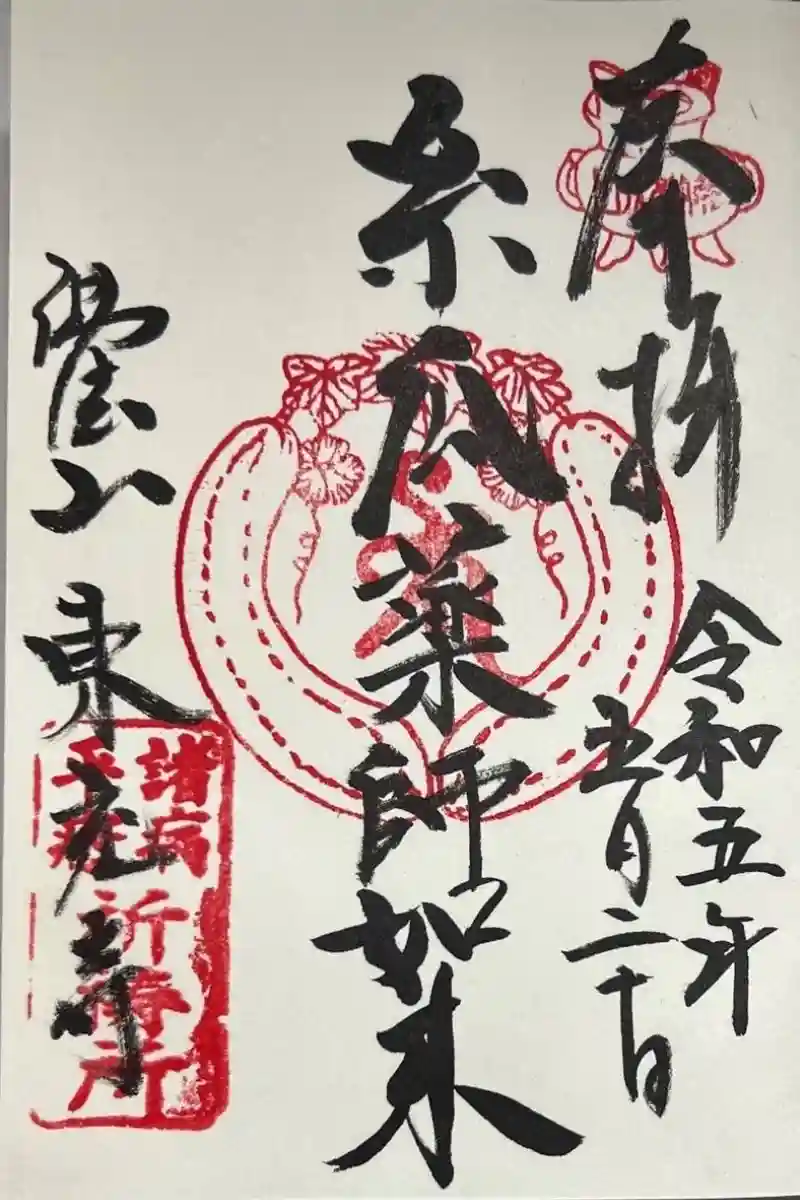 奉拝
令和五年
五月二十日
糸瓜薬師如来
醫王山 東充寺
諸病
平癒
祈祷所